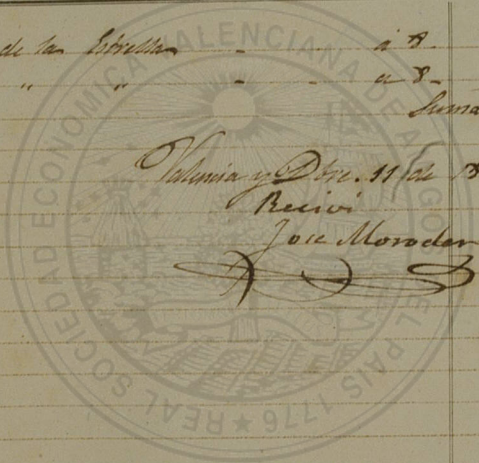 de la Estrella - - á 8.
" " - - a 8-
Suma
Valencia y Dbre. 11 de 18
Recivi
Jose Moroder
REAL SOCIEDAD ECONOMICA VALENCIANA DE AMIGOS DEL PAIS 1776